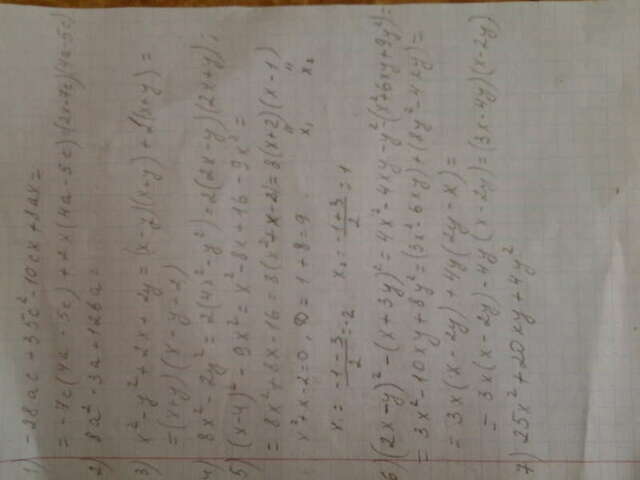 1) -28ac+35c²-10cx+8ax=
= -7c(4a-5c)+2x(4a-5c)=(2x-7c)(4a-5c)
2) 8a²-3a+12ba=
3) x²-y²+2x+2y=(x-y)(x+y)+2(x+y)=
=(x+y)(x-y+2)
4) 8x²-2y²=2(4x²-y²)=2(2x-y)(2x+y);
5) (x-4)²-9x²=x²-8x+16-9x²=
= 8x²+8x-16=8(x²+x-2)=8(x+2)(x-1)
x₁ x₂
x²+x-2=0, D=1+8=9
x₁=\frac{-1-3}{2}=-2 x₂=\frac{-1+3}{2}=1
6) (2x-y)²-(x+3y)²=4x²-4xy-y²(x²+6xy+9y²)=
= 3x²-10xy+8y²=(3x²-6xy)+(8y²-4xy)=
= 3x(x-2y)+4y(2y-x)=
= 3x(x-2y)-4y(x-2y)=(3x-4y)(x-2y)
7) 25x²+20xy+4y²